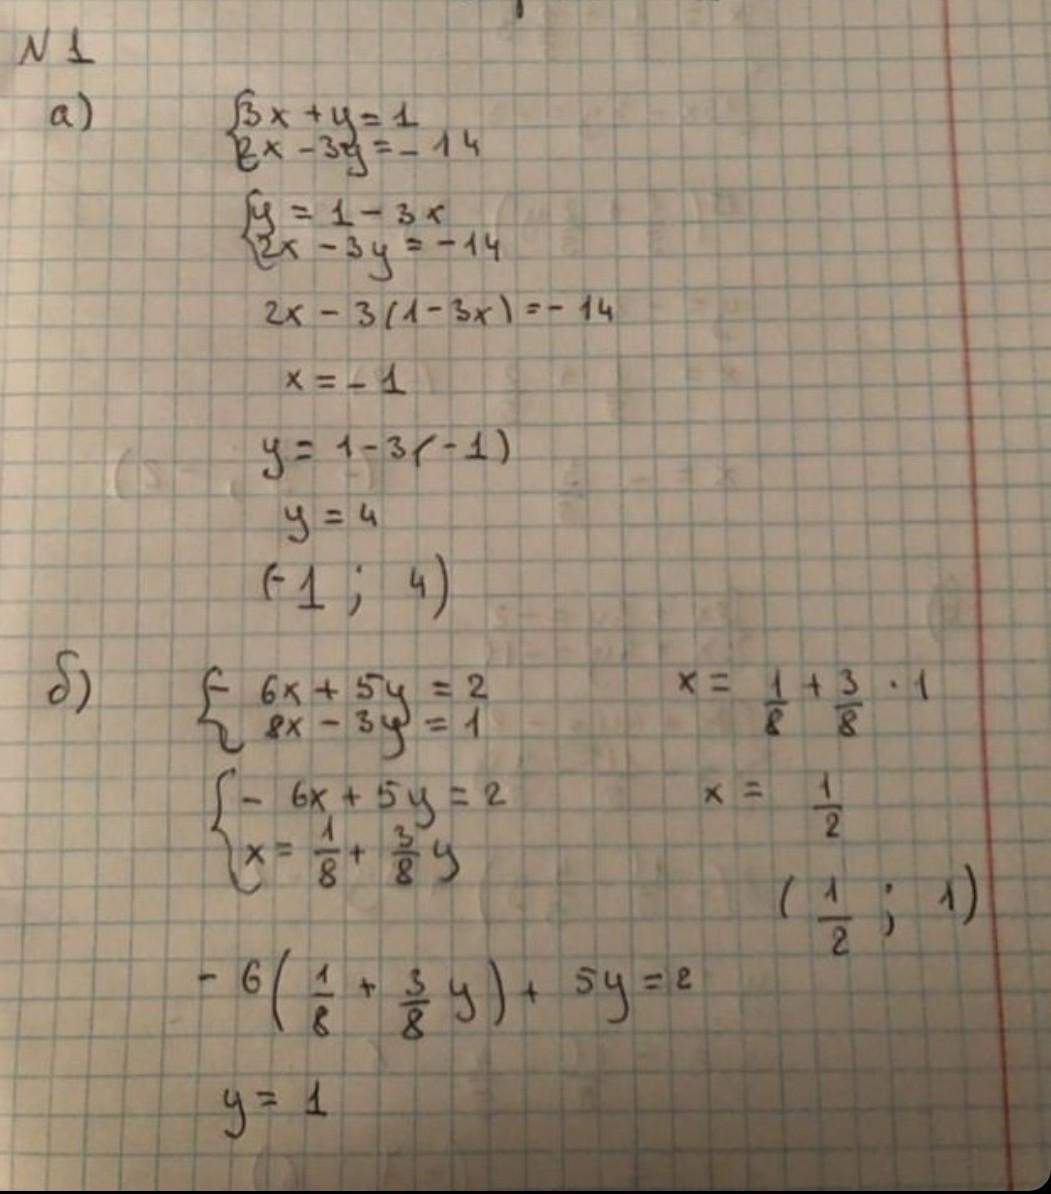 N 1
а)
{3x + y = 1
2x - 3y = - 14
{y = 1 - 3x
2x - 3y = - 14
2x - 3(1 - 3x) = - 14
x = - 1
y = 1 - 3(-1)
y = 4
(-1 ; 4)
б)
{- 6x + 5y = 2
8x - 3y = 1
{- 6x + 5y = 2
x = 1/8 + 3/8 y
- 6(1/8 + 3/8 y) + 5y = 2
y = 1
x = 1/8 + 3/8 · 1
x = 1/2
(1/2 ; 1)